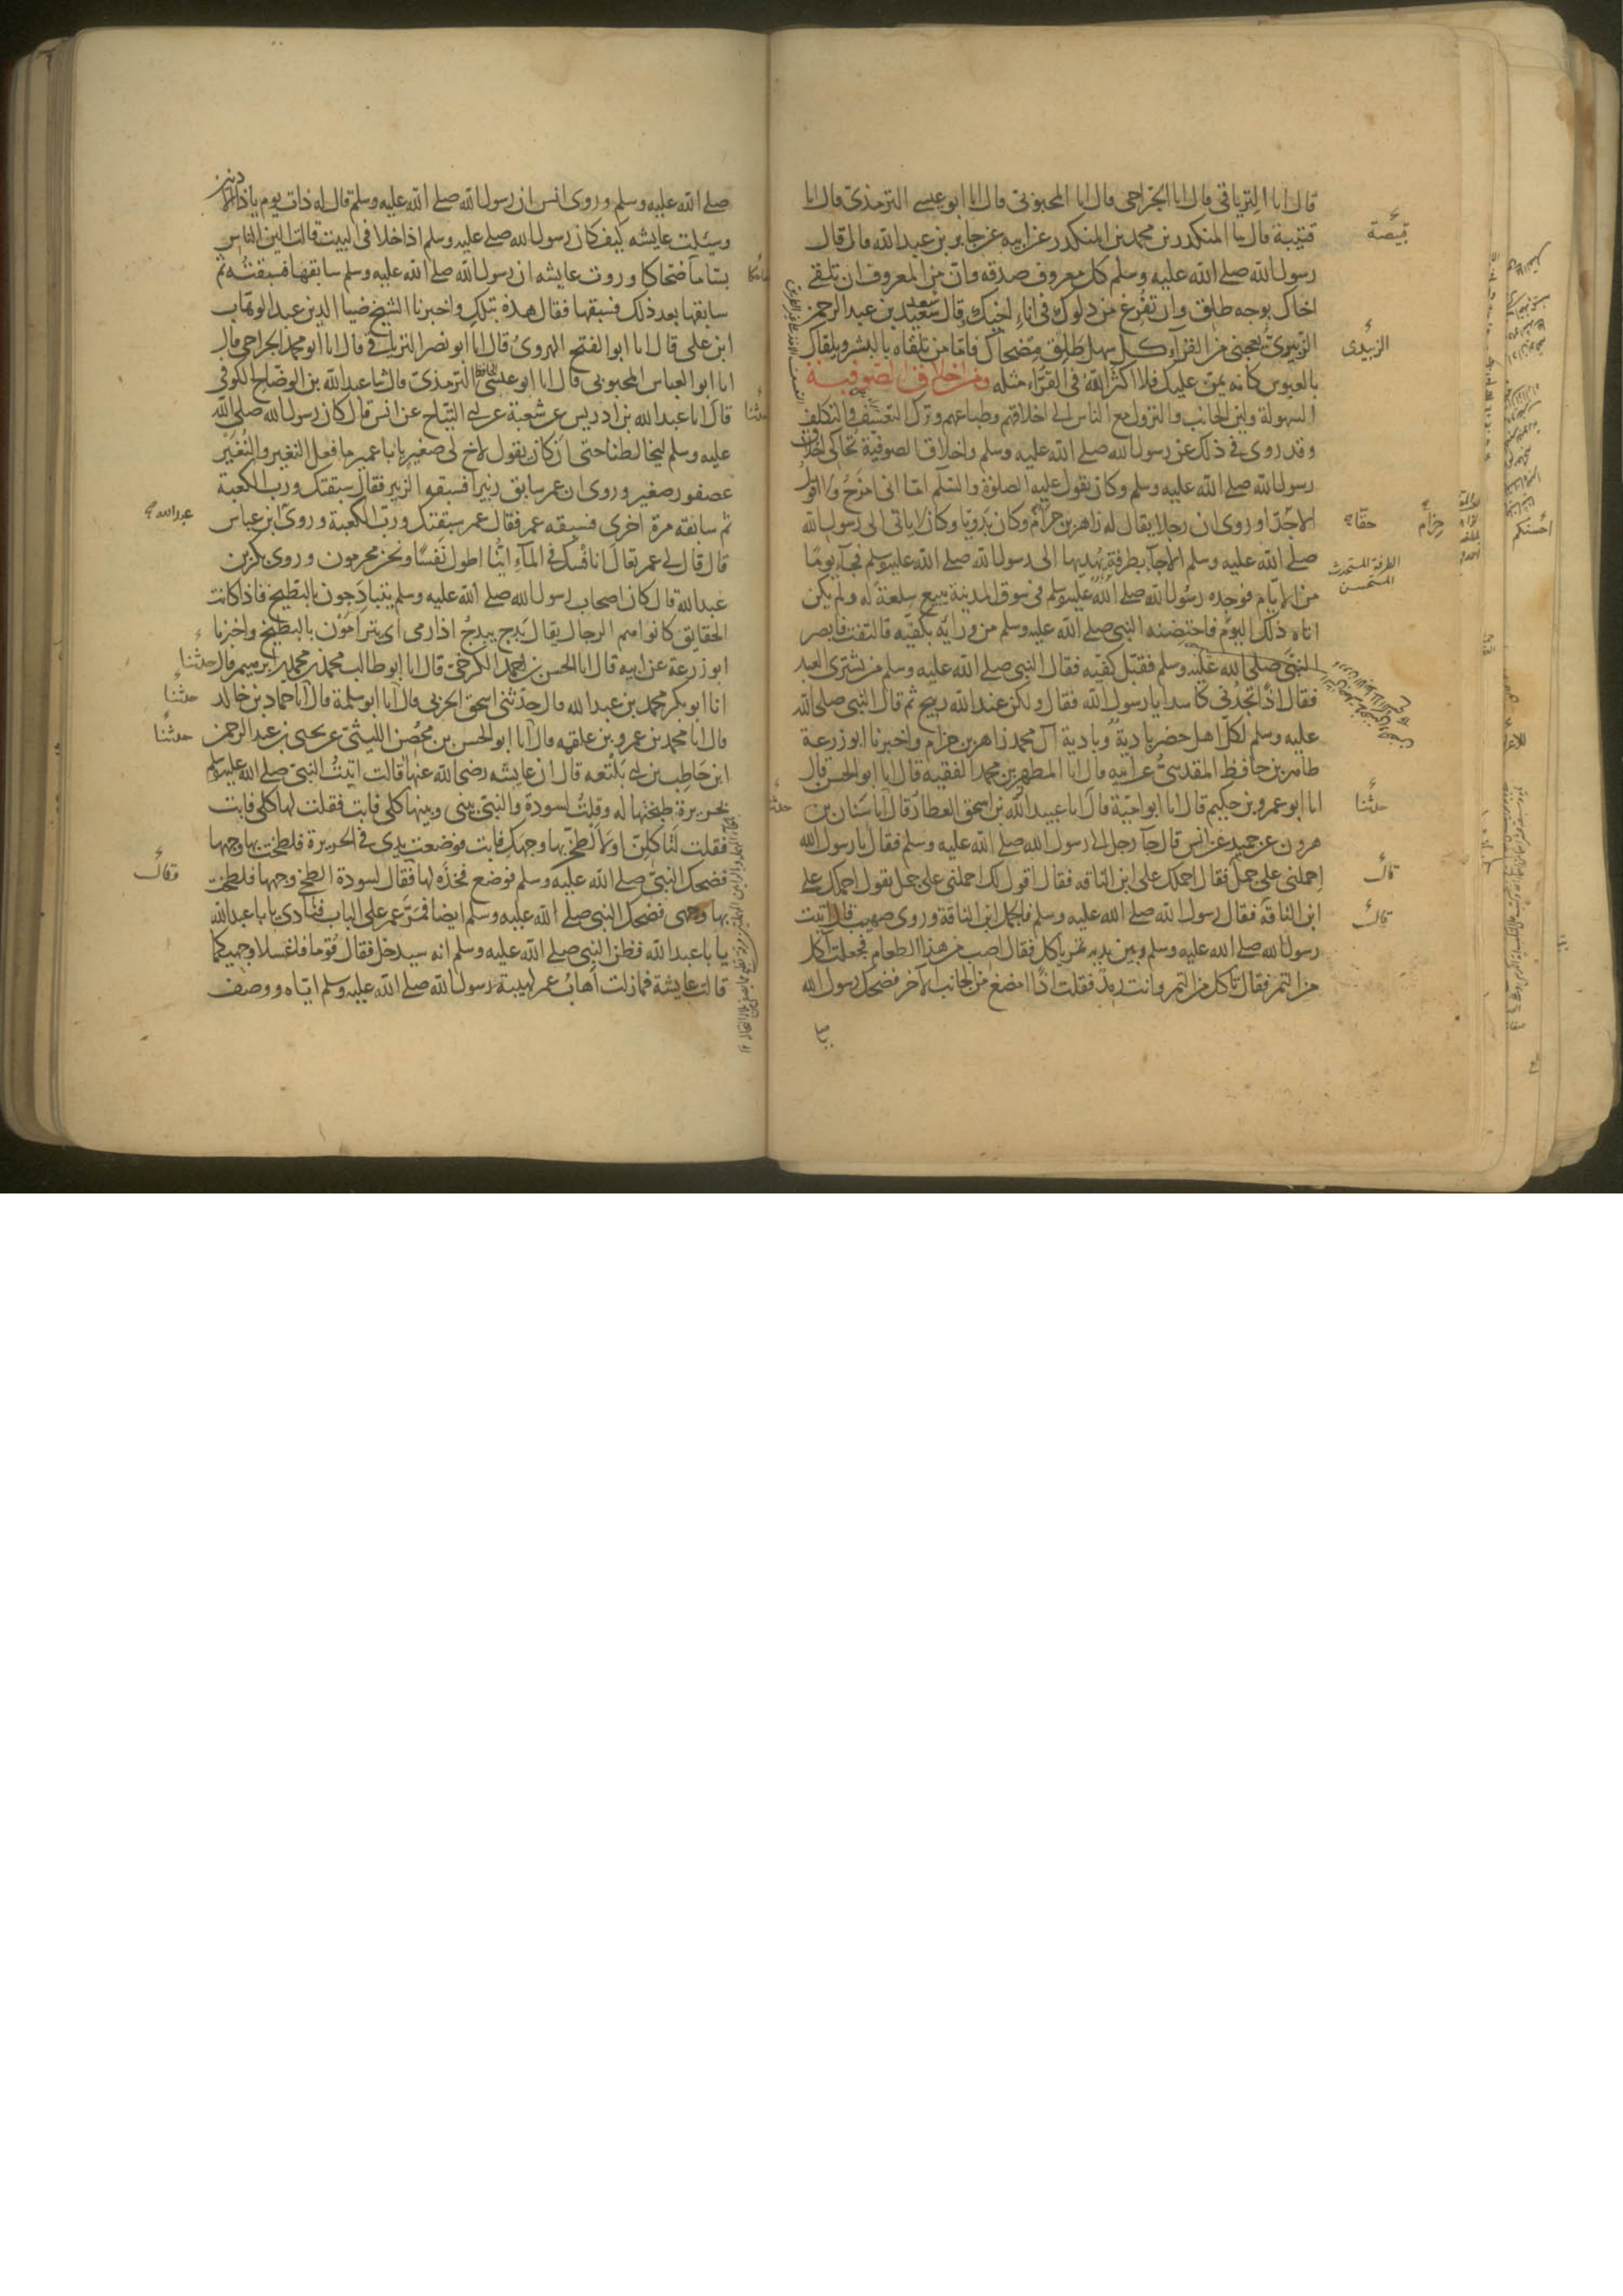 قال انا الترياقى قال انا الجراحى قال انا المحبوبى قال انا ابو عيسى الترمذى قال انا
قتيبة قال ثنا المنكدر بن محمد بن المنكدر عن ابيه عن جابر بن عبد الله قال قال
رسول الله صلى الله عليه وسلم كل معروف صدقه وان من المعروف ان تلقى
اخاك بوجه طلق وان تفرغ من دلوك فى اناء اخيك وقال سعيد بن عبد الرحمن
الزبيدى يعجبنى من القراء كل سهل طلق مضحاك فاما من تلقاه بالبشر ويلقاك
بالعبوس كانه يمن عليك فلا اكثر الله فى القراء مثله ومن اخلاق الصوفية
السهولة ولين الجانب والنزول مع الناس الى اخلاقهم وطباعهم وترك التعسف والتكلف
وقد روى فى ذلك عن رسول الله صلى الله عليه وسلم واخلاق الصوفية تحاكى اخلاق
رسول الله صلى الله عليه وسلم وكان يقول عليه الصلوة والسلم اما انى امزح ولا اقول
الا حقا وروى ان رجلا يقال له زاهر بن حرام وكان بدويا وكان لا ياتى الى رسول الله
صلى الله عليه وسلم الا جآ بطرفة يهديها الى رسول الله صلى الله عليه وسلم فجآء يوما
من الايام فوجده رسول الله صلى الله عليه وسلم فى سوق المدينة يبيع سلعة له ولم يكن
اتاه ذلك اليوم فاحتضنه النبى صلى الله عليه وسلم من ورايه بكفيه فالتفت فابصر
النبى صلى الله عليه وسلم فقبل كفيه فقال النبى صلى الله عليه وسلم من يشترى العبد
فقال اذا تجدنى كاسدا يا رسول الله فقال ولكن عند الله ربيح ثم قال النبى صلى الله
عليه وسلم لكل اهل حضر بادية وبادية آل محمد زاهر بن حرام واخبرنا ابو زرعة
طاهر بن حافظ المقدسى عن ابيه قال انا المطهر بن محمد الفقيه قال انا ابو الحسن قال
انا ابو عمرو بن حكيم قال انا ابو امية قال انا عبيد الله بن اسحق العطار قال انا سنان بن
هرون عن حميد عن انس قال جآ رجل الى رسول الله صلى الله عليه وسلم فقال يا رسول الله
احملنى على جمل فقال احملك على ابن الناقه فقال اقول لك احملنى على جمل يقول احملك على
ابن الناقة فقال رسول الله صلى الله عليه وسلم فالجمل ابن الناقة وروى صهيب قال اتيت
رسول الله صلى الله عليه وسلم وبين يديه تمر ياكل فقال اصب من هذا الطعام فجعلت آكل
من التمر فقال تاكل من التمر وانت رمد فقلت اذا امضغ من الجانب الآخر فضحك رسول الله
قبيصة
الزبيدى
حقا
حزام
الطرفة المستحدث
المستحسن
حدثنا
قال
قال
صلى الله عليه وسلم وروى انس ان رسول الله صلى الله عليه وسلم قال له ذات يوم يا ذا الاذنين
وسئلت عايشه كيف كان رسول الله صلى عليه وسلم اذا خلا فى البيت قالت الين الناس
بساما ضحاكا وروت عايشه ان رسول الله صلى الله عليه وسلم سابقها فسبقته ثم
سابقها بعد ذلك فسبقها فقال هذه بتلك واخبرنا الشيخ ضيا الدين عبد الوهاب
ابن على قال انا ابو الفتح الهروى قال انا ابو نصر الترياقى قال انا ابو محمد الجراحى قال
انا ابو العباس المحبوبى قال انا ابو عيسى الحافظ الترمذى قال ثنا عبد الله بن الوضاح الكوفى
قال انا عبد الله بن ادريس عن شعبة عن ابى التياح عن انس قال كان رسول الله صلى الله
عليه وسلم ليخالطنا حتى ان كان يقول لاخ لى صغير يا با عمير ما فعل النغير والنغير
عصفور صغير وروى ان عمر سابق زبيرا فسبقه الزبير فقال سبقتك ورب الكعبة
ثم سابقه مرة اخرى فسبقه عمر فقال عمر سبقتك ورب الكعبة وروى ابن عباس
قال قال لى عمر تعال انافسك فى المآء اينا اطول نفسا ونحن محرمون وروى بكر بن
عبد الله قال كان اصحاب رسول الله صلى الله عليه وسلم يتبادجون بالبطيخ فاذا كانت
الحقايق كانوا هم الرجال يقال بدج يبدج اذا رمى اى يترامون بالبطيخ واخبرنا
ابو زرعة عن ابيه قال انا الحسن بن احمد الكرخى قال انا ابو طالب محمد بن محمد بن ابراهيم قال
انا ابو بكر محمد بن عبد الله قال حدثنى اسحق الحربى قال انا ابو سلمة قال انا حماد بن خالد
قال انا محمد بن عمرو بن علقمه قال انا ابو الحسن بن محصن الليثى عن يحيى بن عبد الرحمن
ابن حاطب بن ابى بلتعه قال ان عايشه رضى الله عنها قالت اتيت النبى صلى الله عليه وسلم
بحريرة طبختها له وقلت لسودة والنبى بينى وبينها كلى فابت فقلت لها كلى فابت
فقلت لتاكلن او لالطخن بها وجهك فابت فوضعت يدى فى الحريرة فلطخت بها وجهها
فضحك النبى صلى الله عليه وسلم فوضع فخذه لها فقال لسودة الطخى وجهها فلطخت
بها وجهى فضحك النبى صلى الله عليه وسلم ايضا فمر عمر على الباب فنادى يا با عبد الله
يا با عبد الله فظن النبى صلى الله عليه وسلم انه سيدخل فقال قوما فاغسلا وجهيكما
قالت عايشة فما زلت اهاب عمر لهيبة رسول الله صلى الله عليه وسلم اياه ووصف
عبد الله
حدثنا
حدثنا
حدثنا
فقال